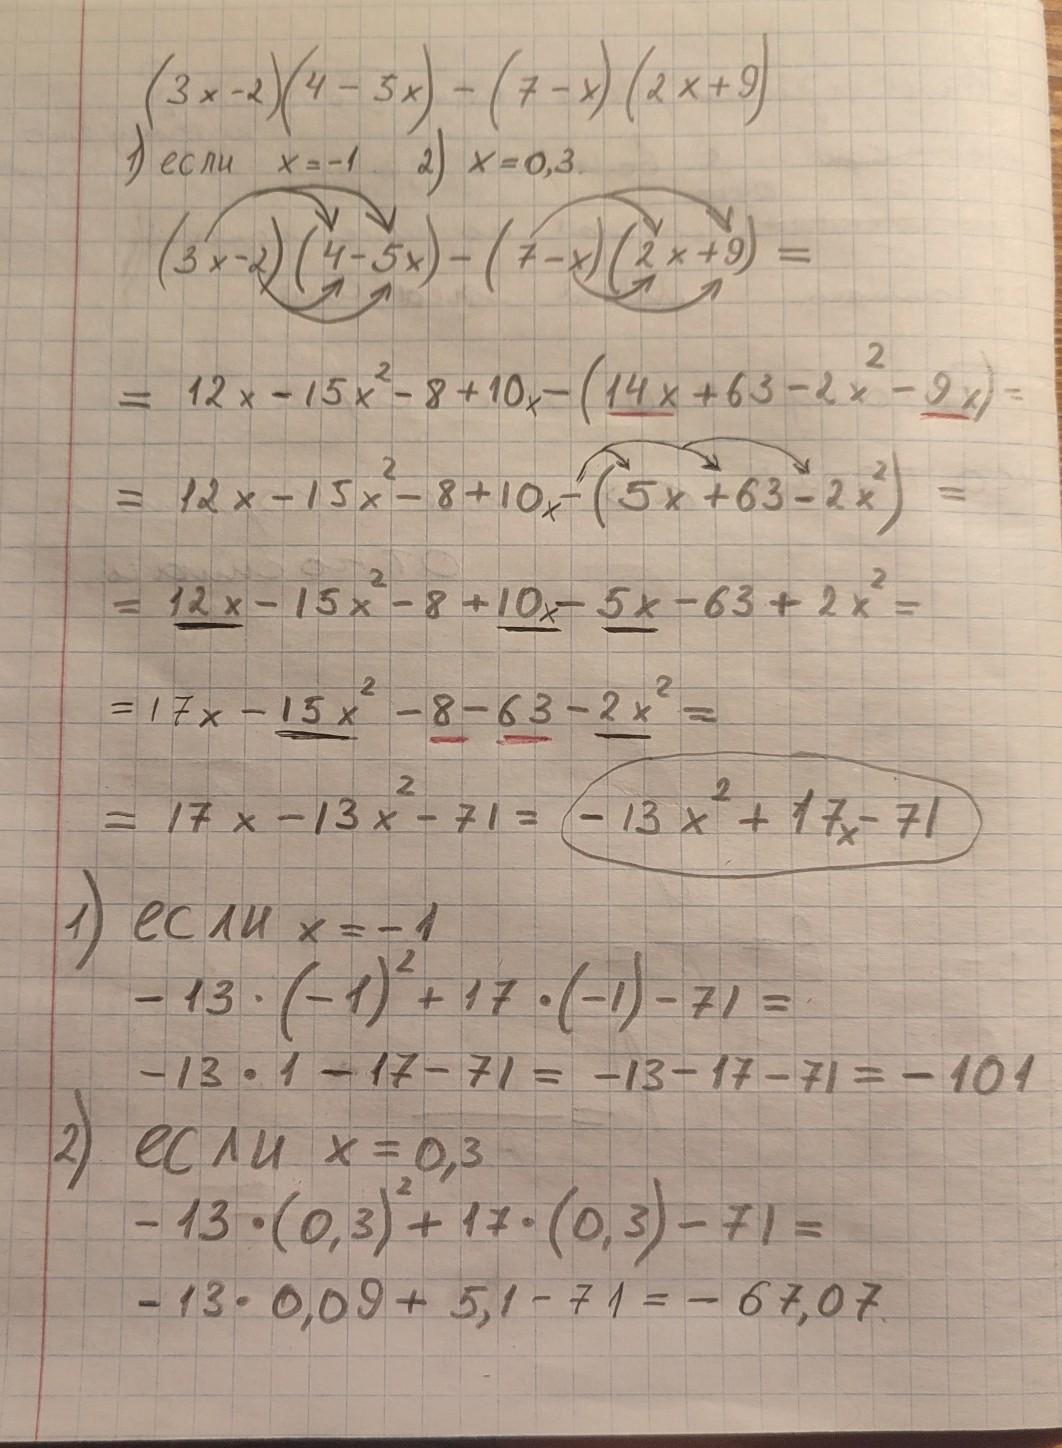 (3x-2)(4-5x)-(7-x)(2x+9)
1) если x=-1 2) x=0,3.
(3x-2)(4-5x)-(7-x)(2x+9)=
= 12x-15x²-8+10x-(14x+63-2x²-9x)=
= 12x-15x²-8+10x-(5x+63-2x²) =
= 12x-15x²-8+10x-5x-63+2x²=
=17x-15x²-8-63-2x²=
= 17x-13x²-71= -13x²+17x-71
1) если x=-1
-13·(-1)²+17·(-1)-71=
-13·1-17-71= -13-17-71=-101
2) если x=0,3
-13·(0,3)²+17·(0,3)-71=
-13·0,09+5,1-71=-67,07.